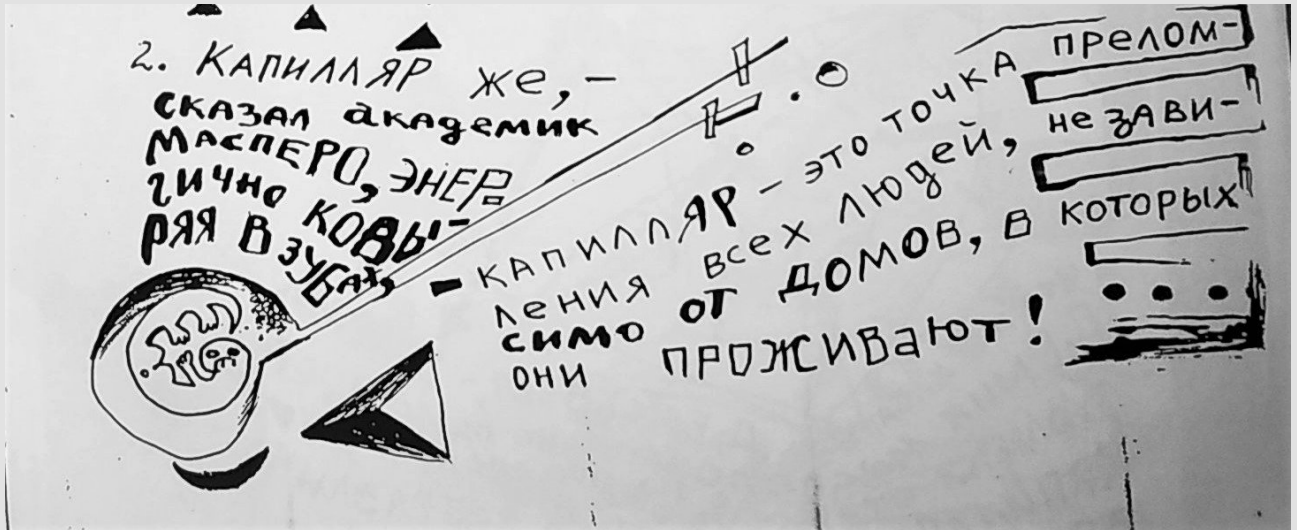 2. Капилляр же, –
сказал академик
Масперо, энер-
гично ковы-
ряя в зубах,
– капилляр – это точка прелом-
ления всех людей, незави-
симо от домов, в которых
они проживают!